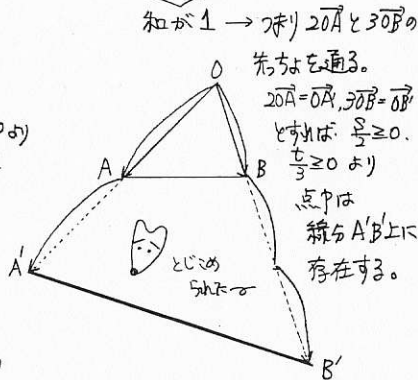 和が1 → つまり 2OA→ と 3OB→ の
先っちょを通る。
2OA→=OA'→, 3OB→=OB'→
とすれば s/2≧0.
t/3≧0 より
点Pは
線分A'B'上に
存在する。
より
O
A
B
A'
B'
とじこめ
られた〜